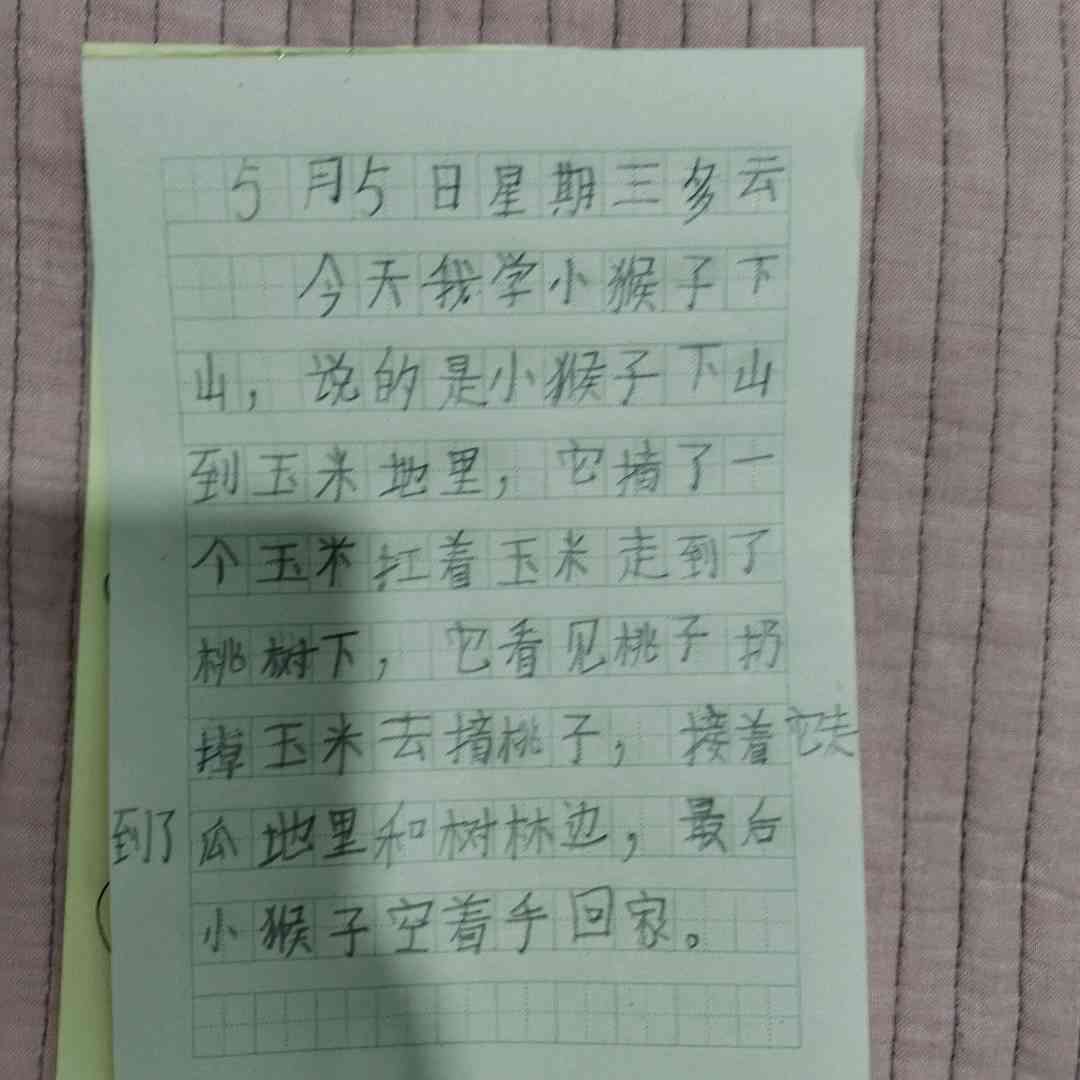 5月5日星期三多云
今天我学小猴子下
山，说的是小猴子下山
到玉米地里，它摘了一
个玉米扛着玉米走到了
桃树下，它看见桃子扔
掉玉米去摘桃子，接着它走
到了瓜地里和树林边，最后
小猴子空着手回家。